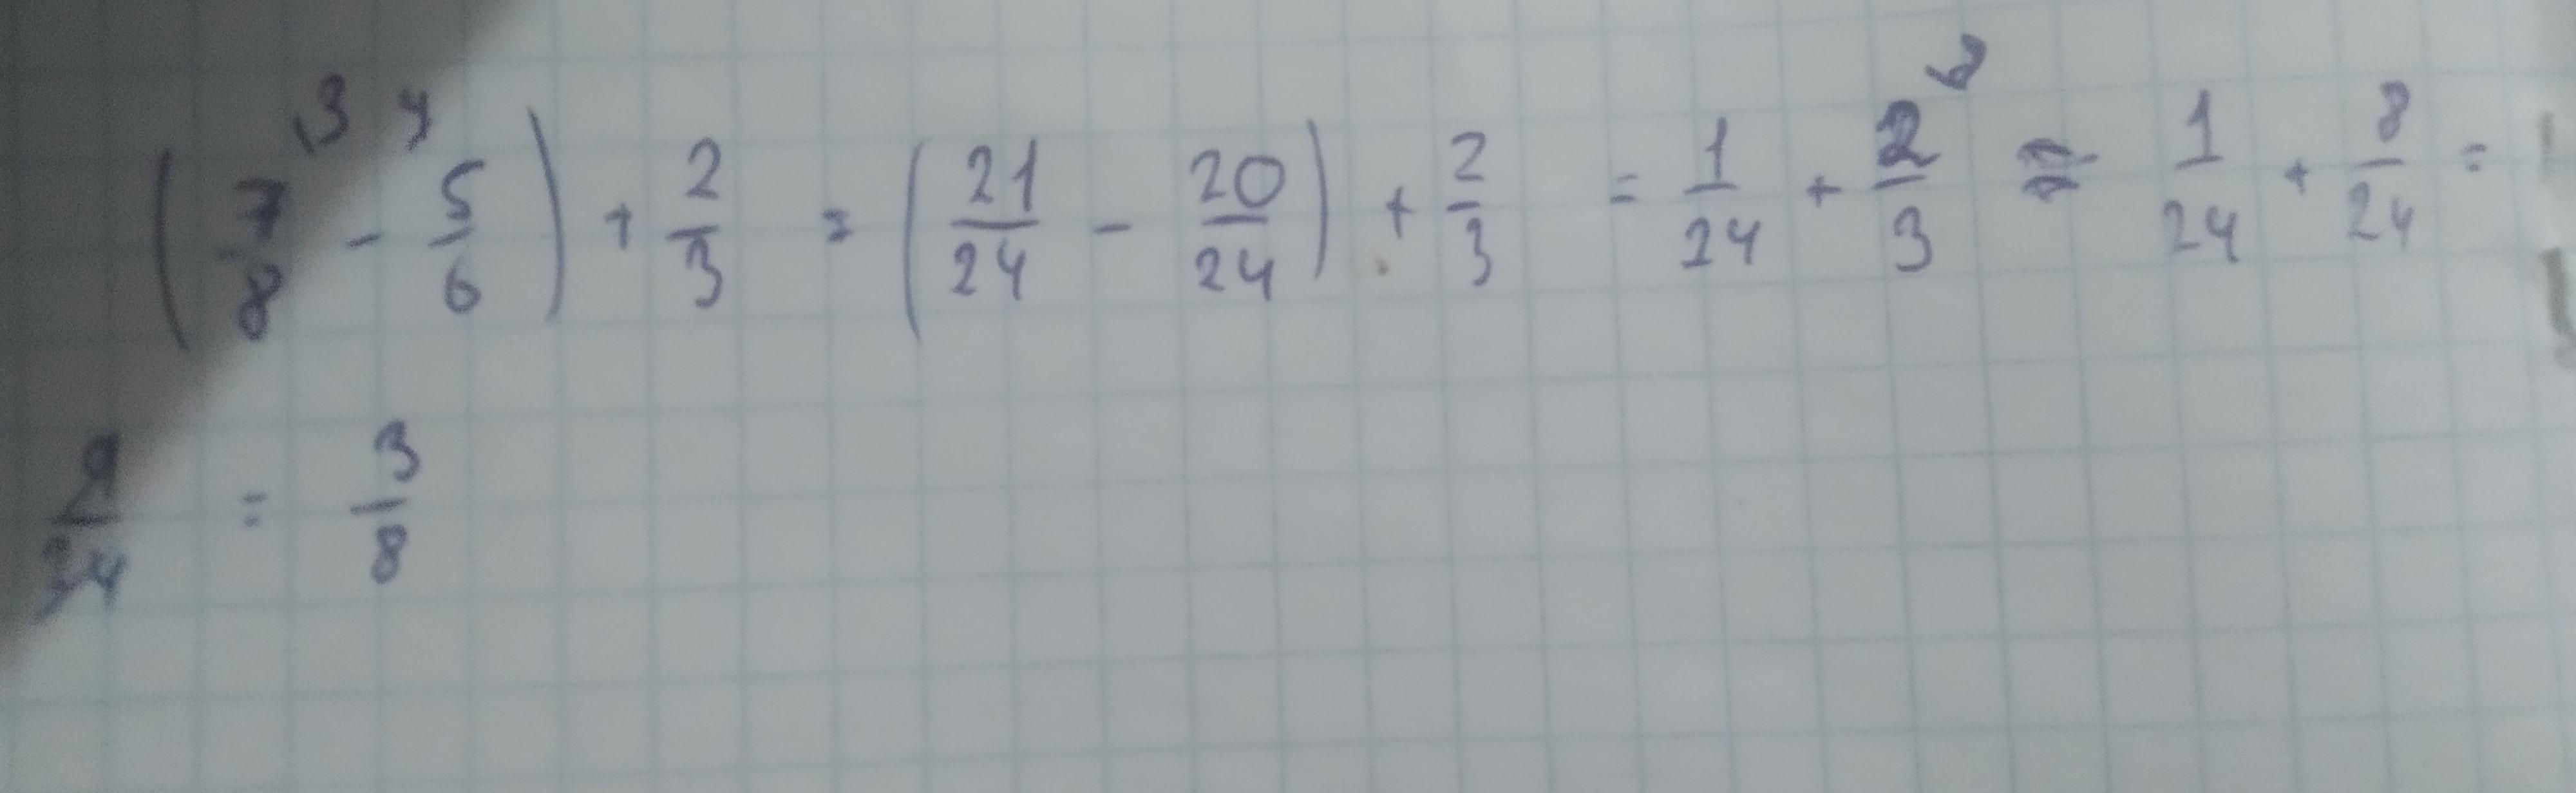 (7/8 ³ - 5/6 ⁴) + 2/3 = (21/24 - 20/24) + 2/3 = 1/24 + 2/3 ⁸ = 1/24 + 8/24 =
9/24 = 3/8